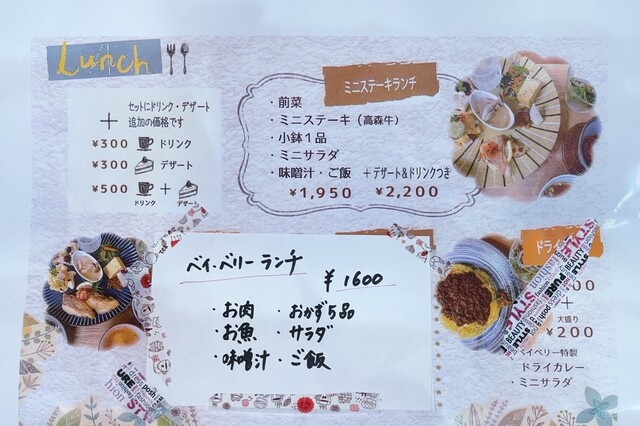 Lunch
セットにドリンク・デザート
＋ 追加の価格です
¥300 ドリンク
¥300 デザート
¥500 ＋
ドリンク デザート
ミニステーキランチ
・前菜
・ミニステーキ（高森牛）
・小鉢1品
・ミニサラダ
・味噌汁・ご飯 ＋デザート&ドリンクつき
¥1,950 ¥2,200
ベイ・ベリーランチ
¥1600
・お肉 ・おかず5品
・お魚 ・サラダ
・味噌汁 ・ご飯
ドライ
00
＋
大盛り
¥200
ベイベリー特製
ドライカレー
・ミニサラダ